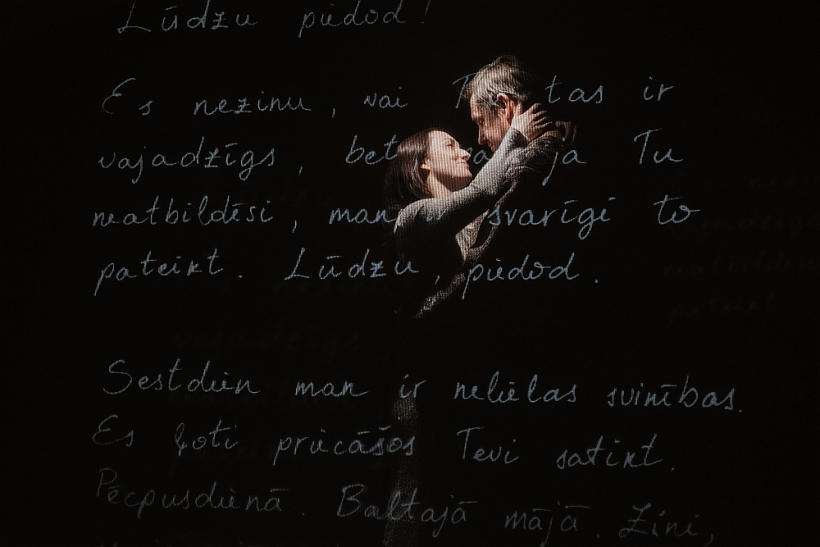 Lūdzu piedod!
Es nezinu, vai tas ir
vajadzīgs, bet ja Tu
neatbildēsi, man ir svarīgi to
pateikt. Lūdzu, piedod.
Sestdien man ir nelielas svinības.
Es ļoti priecāšos Tevi satikt.
Pēcpusdienā. Baltajā mājā. Zini,